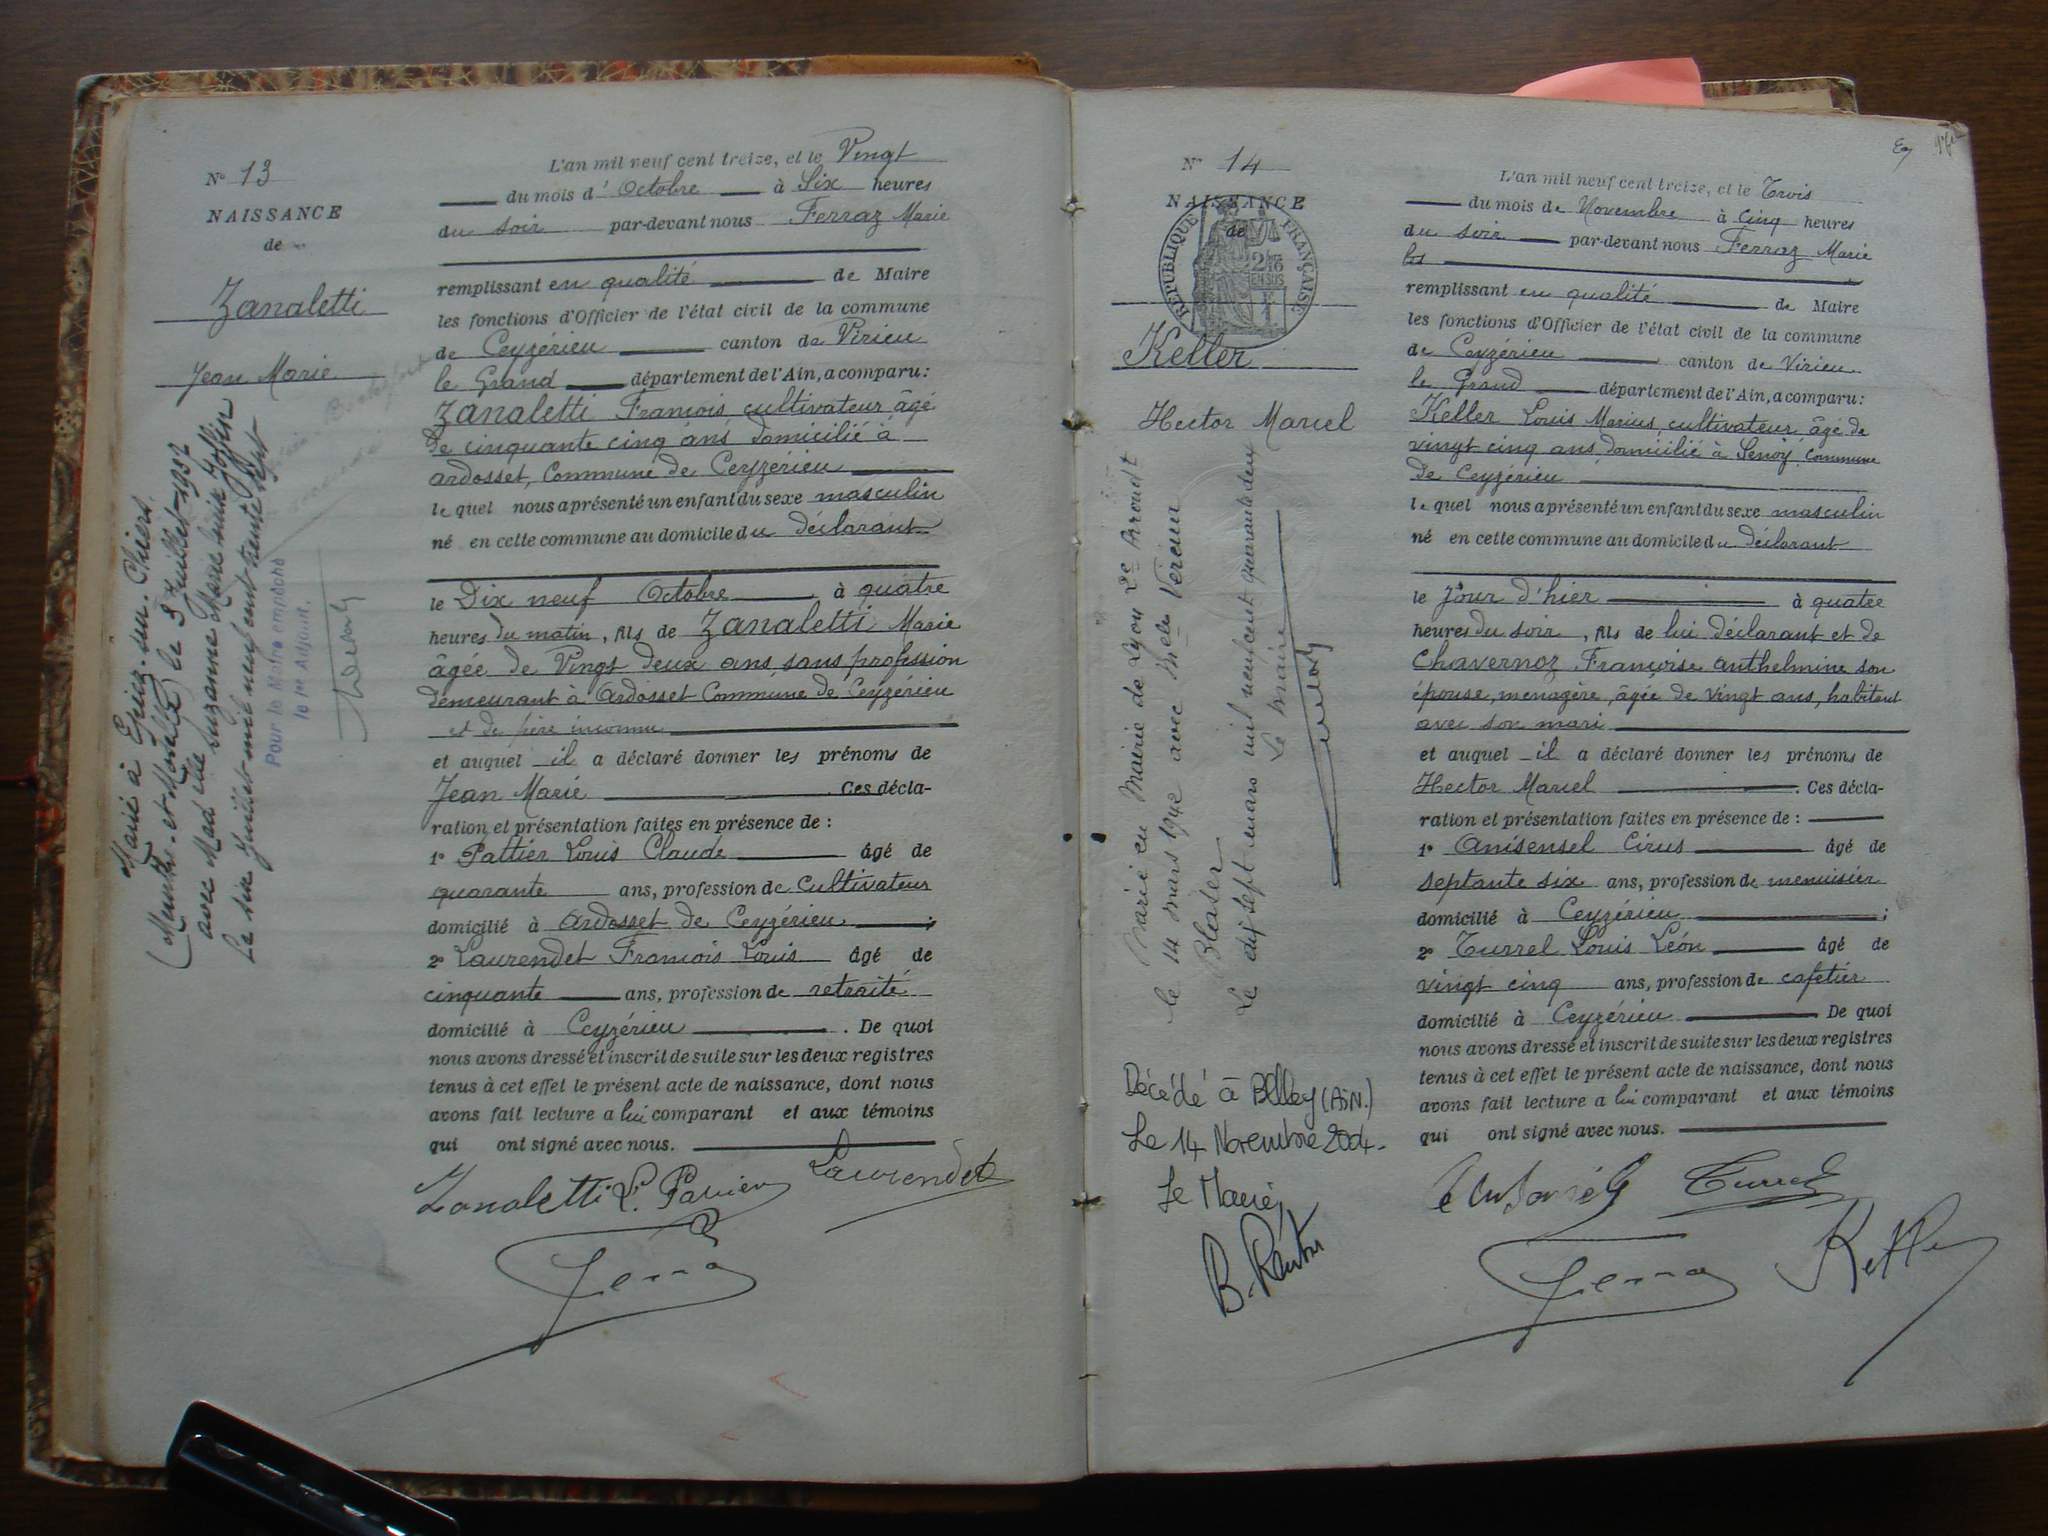 N° 13
NAISSANCE
de
Zanaletti
Jean Marie
Marié à Epiez-sur-Chiers
(Meurthe-et-Moselle) le 5 Juillet 1937
avec Mad elle Suzanne Marie Joffin
Le six Juillet mil neuf cent trente sept
Pour le Maire empêché
le 1er Adjoint,
L'an mil neuf cent treize, et le Vingt
du mois d' Octobre à Six heures
du soir par-devant nous Ferraz Marie
remplissant en qualité de Maire
les fonctions d'Officier de l'état civil de la commune
de Ceyzérieu canton de Virieu
le Grand département de l'Ain, a comparu :
Zanaletti Francois cultivateur âgé
de cinquante cinq ans domicilié à
Ardosset, Commune de Ceyzérieu
le quel nous a présenté un enfant du sexe masculin
né en cette commune au domicile du déclarant
le Dix neuf Octobre à quatre
heures du matin, fils de Zanaletti Marie
âgée de Vingt deux ans, sans profession
demeurant à Ardosset Commune de Ceyzérieu
et de père inconnu
et auquel il a déclaré donner les prénoms de
Jean Marie . Ces décla-
ration et présentation faites en présence de :
1° Pattier Louis Claude âgé de
quarante ans, profession de cultivateur
domicilié à Ardosset de Ceyzérieu ;
2° Laurendet Francois Louis âgé de
cinquante ans, profession de retraité
domicilié à Ceyzérieu . De quoi
nous avons dressé et inscrit de suite sur les deux registres
tenus à cet effet le présent acte de naissance, dont nous
avons fait lecture a lui comparant et aux témoins
qui ont signé avec nous.
Zanaletti L. Pattier Laurendet
Ferraz
N° 14
NAISSANCE
de
REPUBLIQUE FRANÇAISE
Keller
Hector Marcel
Marié en Mairie de Lyon 2e Arrondt
le 14 mars 1942 avec Melle
Blaser
Le dix sept mars mil neuf cent quarante deux
Le maire
Décédé à Belley (AiN.)
Le 14 Novembre 2004.
Le Maire,
L'an mil neuf cent treize, et le Trois
du mois de Novembre à Cinq heures
du soir par-devant nous Ferraz Marie
remplissant en qualité de Maire
les fonctions d'Officier de l'état civil de la commune
de Ceyzérieu canton de Virieu
le Grand département de l'Ain, a comparu :
Keller Louis Marius, cultivateur âgé de
vingt cinq ans domicilié à Senoy, Commune
de Ceyzérieu
le quel nous a présenté un enfant du sexe masculin
né en cette commune au domicile du déclarant
le jour d'hier à quatre
heures du soir, fils de lui déclarant et de
Chavernoz Françoise Anthelmine son
épouse, menagère, âgée de vingt ans, habitant
avec son mari
et auquel il a déclaré donner les prénoms de
Hector Marcel . Ces décla-
ration et présentation faites en présence de :
1° Anisensel Cirus âgé de
septante six ans, profession de menuisier
domicilié à Ceyzérieu ;
2° Turrel Louis Léon âgé de
vingt cinq ans, profession de cafetier
domicilié à Ceyzérieu De quoi
nous avons dressé et inscrit de suite sur les deux registres
tenus à cet effet le présent acte de naissance, dont nous
avons fait lecture a lui comparant et aux témoins
qui ont signé avec nous.
Turrel
Ferraz Keller